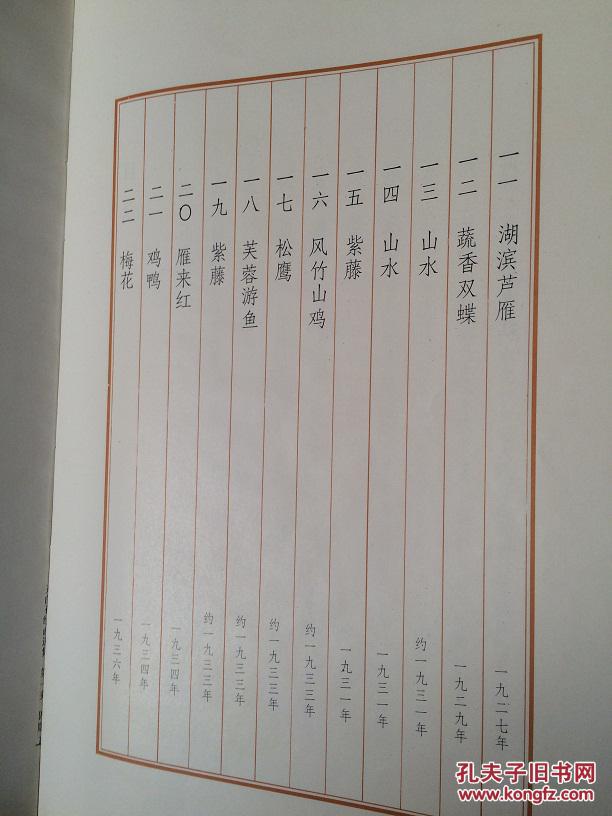 一一 湖滨芦雁 一九二七年
一二 蔬香双蝶 一九二九年
一三 山水 约一九三一年
一四 山水 一九三一年
一五 紫藤 一九三一年
一六 风竹山鸡 约一九三三年
一七 松鹰 约一九三三年
一八 芙蓉游鱼 约一九三三年
一九 紫藤 约一九三三年
二〇 雁来红 一九三四年
二一 鸡鸭 一九三四年
二二 梅花 一九三六年
孔夫子旧书网
www.kongfz.com